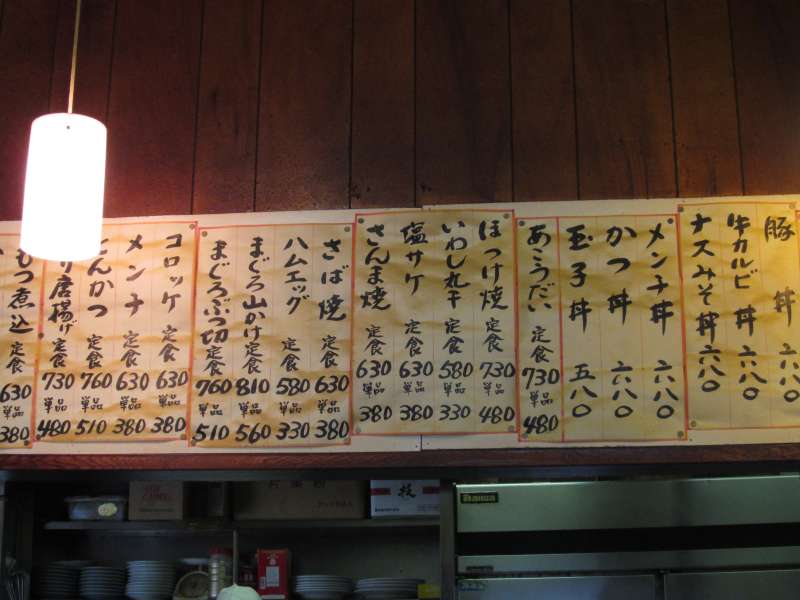 豚丼 六八〇
牛カルビ丼 六八〇
ナスみそ丼 六八〇
メンチ丼 六八〇
かつ丼 六八〇
玉子丼 五八〇
あこうだい 定食 730 単品 480
ほっけ焼 定食 730 単品 480
いわし丸干 定食 580 単品 330
塩サケ 定食 630 単品 380
さんま焼 定食 630 単品 380
さば焼 定食 630 単品 380
ハムエッグ 定食 580 単品 330
まぐろ山かけ 定食 810 単品 560
まぐろぶつ切 定食 760 単品 510
コロッケ 定食 630 単品 380
メンチ 定食 630 単品 380
とんかつ 定食 760 単品 510
り唐揚げ 定食 730 単品 480
もつ煮込 定食 630 単品 380
技